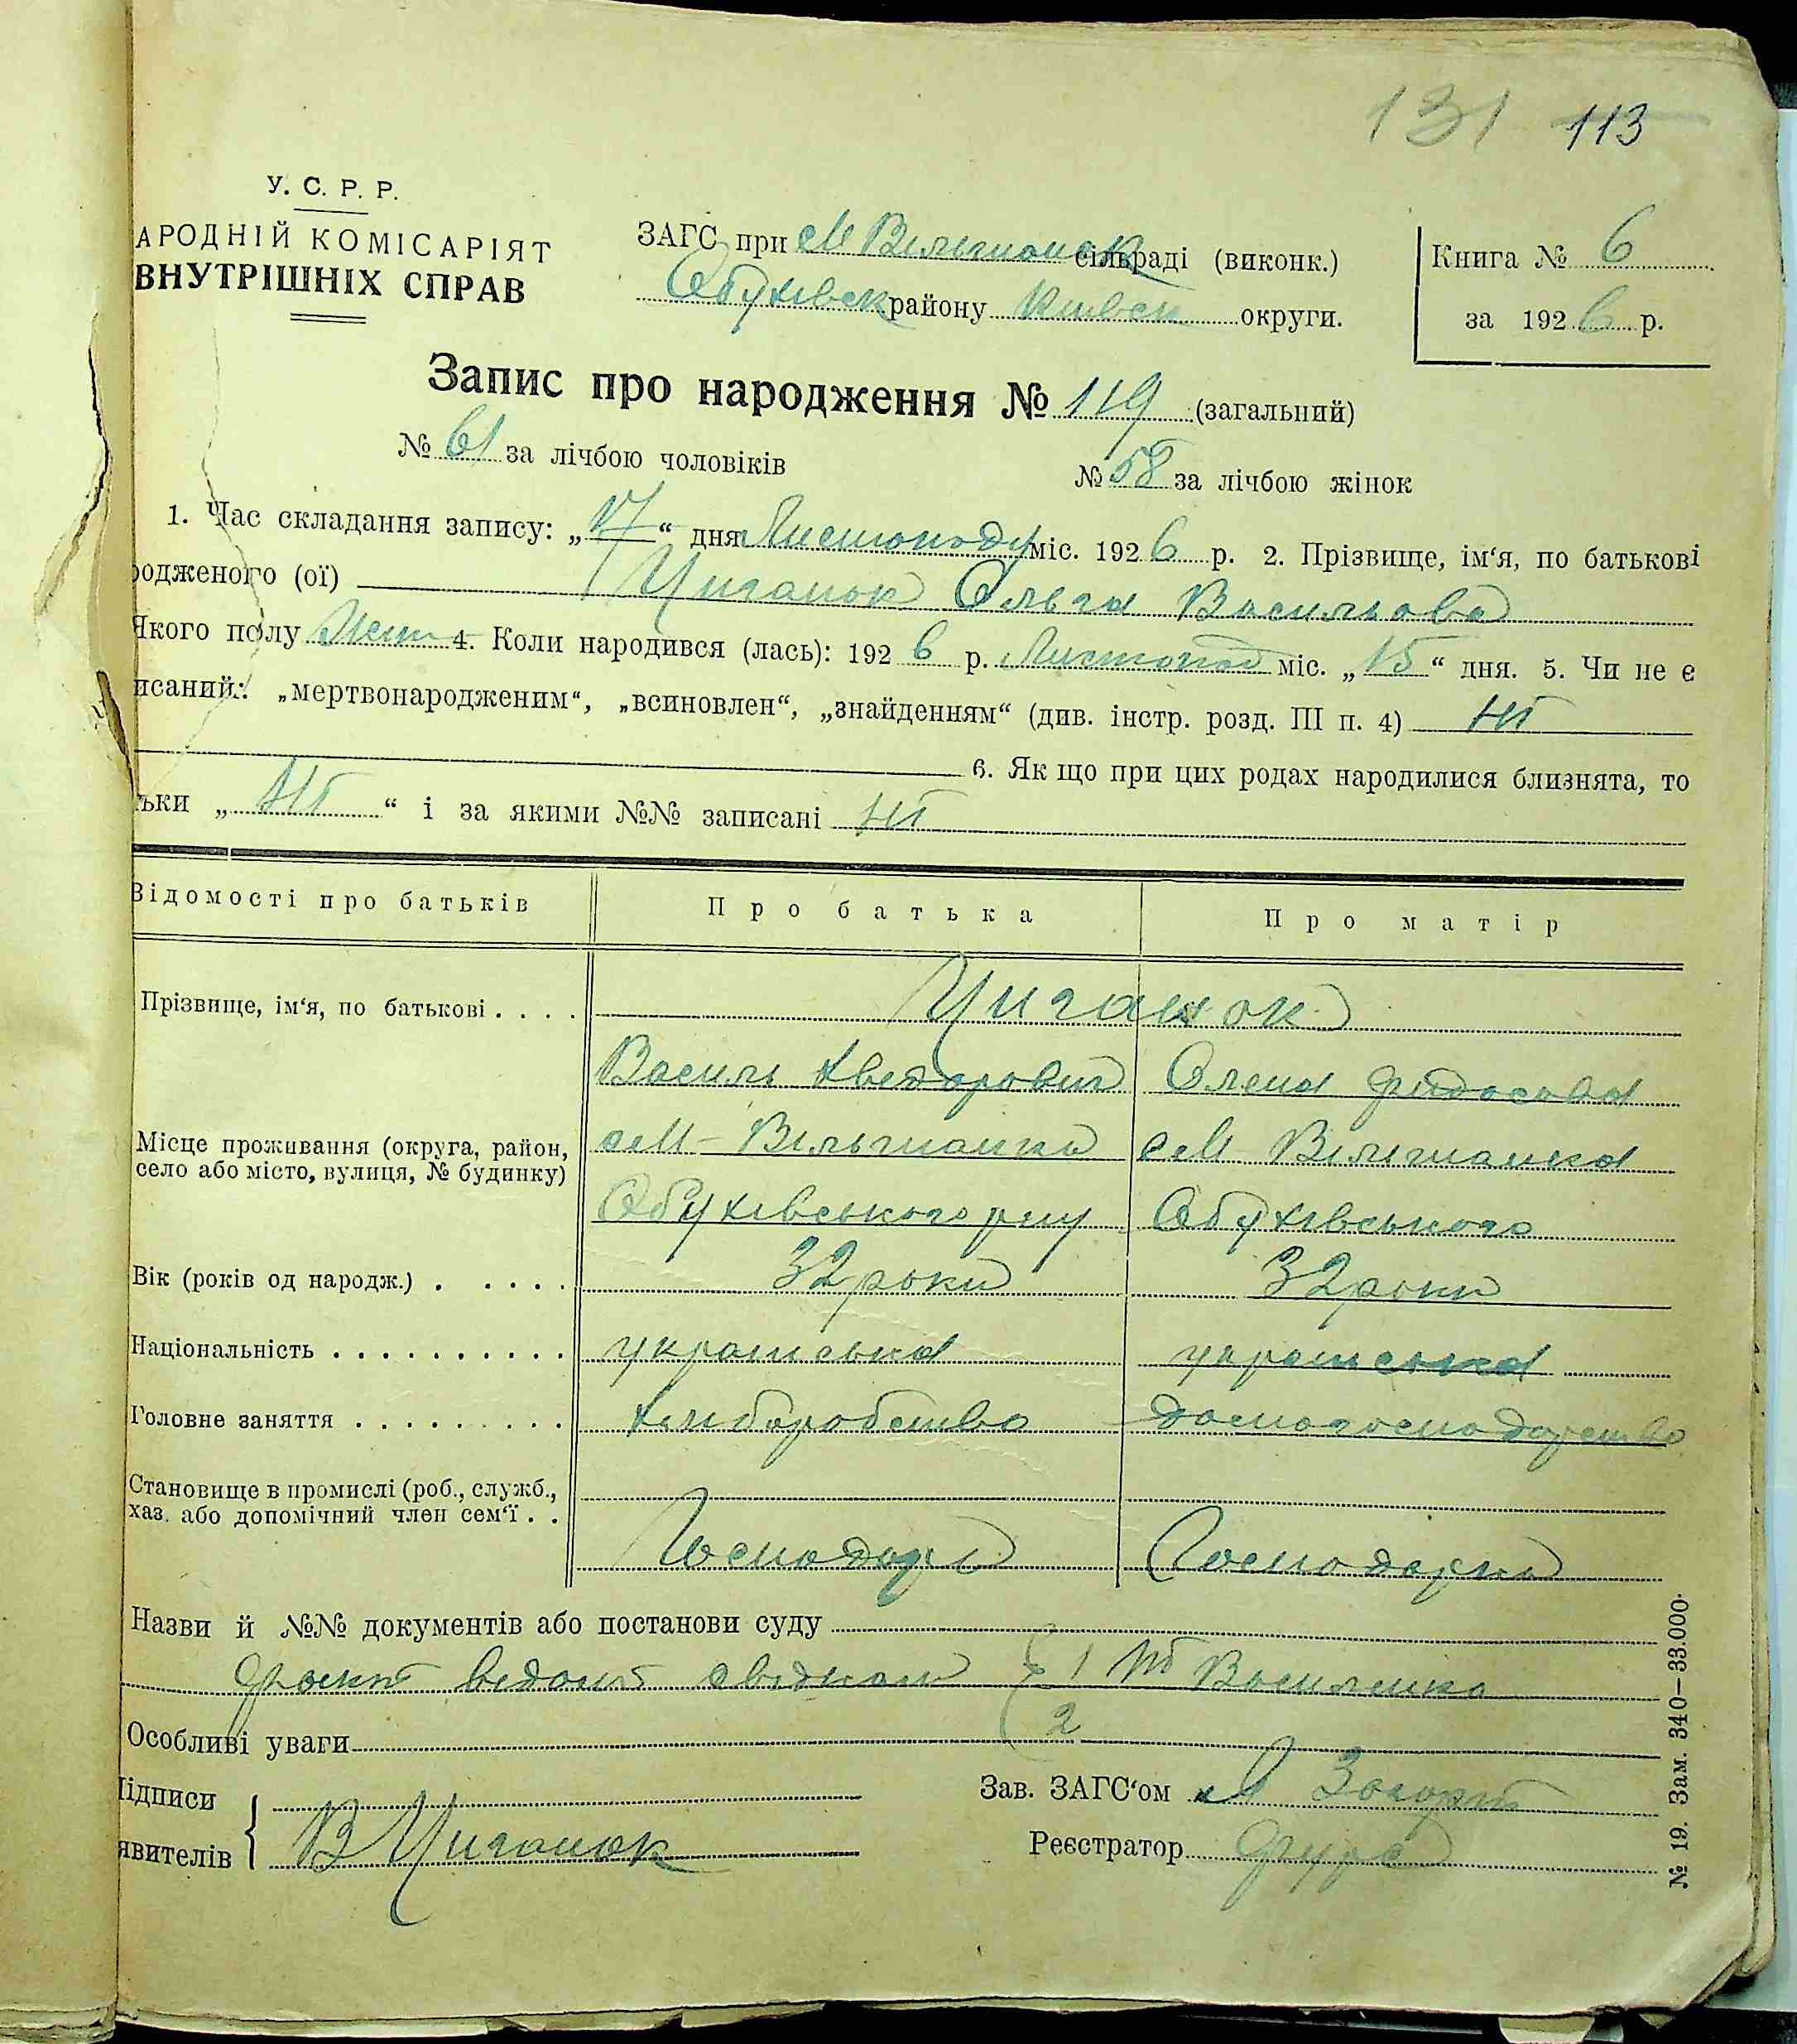 131 113
У. С. Р. Р.
АРОДНІЙ КОМІСАРІЯТ
ВНУТРІШНІХ СПРАВ
ЗАГС при см Вільшанськ сільраді (виконк.)
Обухівськ району Київськ округи.
Книга № 6
за 1926 р.
Запис про народження № 119 (загальний)
№ 61 за лічбою чоловіків
№ 58 за лічбою жінок
1. Час складання запису: „17“ дня Листопаду міс. 1926 р. 2. Прізвище, ім‘я, по батькові
родженого (ої) Циганок Ольга Васильова
Якого полу Жен 4. Коли народився (лась): 1926 р. Листопад міс. „15“ дня. 5. Чи не є
исаний: „мертвонародженим“, „всиновлен“, „знайденням“ (див. інстр. розд. III п. 4) ні
6. Як що при цих родах народилися близнята, то
ьки „ Ні “ і за якими №№ записані ні
Відомості про батьків
Про батька
Про матір
Прізвище, ім‘я, по батькові
Циганок
Василь Хведорович
Олена Федосова
Місце проживання (округа, район,
село або місто, вулиця, № будинку)
см - Вільшанка
см Вільшанка
Обухівського р-ну
Обухівського
Вік (років од народж.)
32 роки
32 роки
Національність
українська
українська
Головне заняття
хліборобство
домогосподарство
Становище в промислі (роб., служб.,
хаз. або допомічний член сем‘ї
Господарь
Господарка
Назви й №№ документів або постанови суду
факт відомі свідкам 1 Василенко
2
Особливі уваги
Підписи
явителів
В Циганок
Зав. ЗАГС‘ом
Реєстратор
№ 19. Зам. 340—33.000.